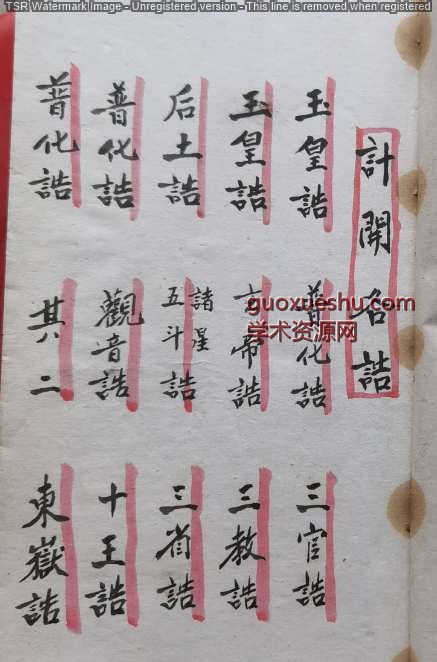 TSR Watermark Image - Unregistered version - This line is removed when registered
計開名誥
玉皇誥 普化誥 三官誥
玉皇誥 帝誥 三教誥
后土誥 諸星五斗誥 三省誥
普化誥 觀音誥 十王誥
普化誥 其二 東嶽誥
guoxueshu.com
学术资源网